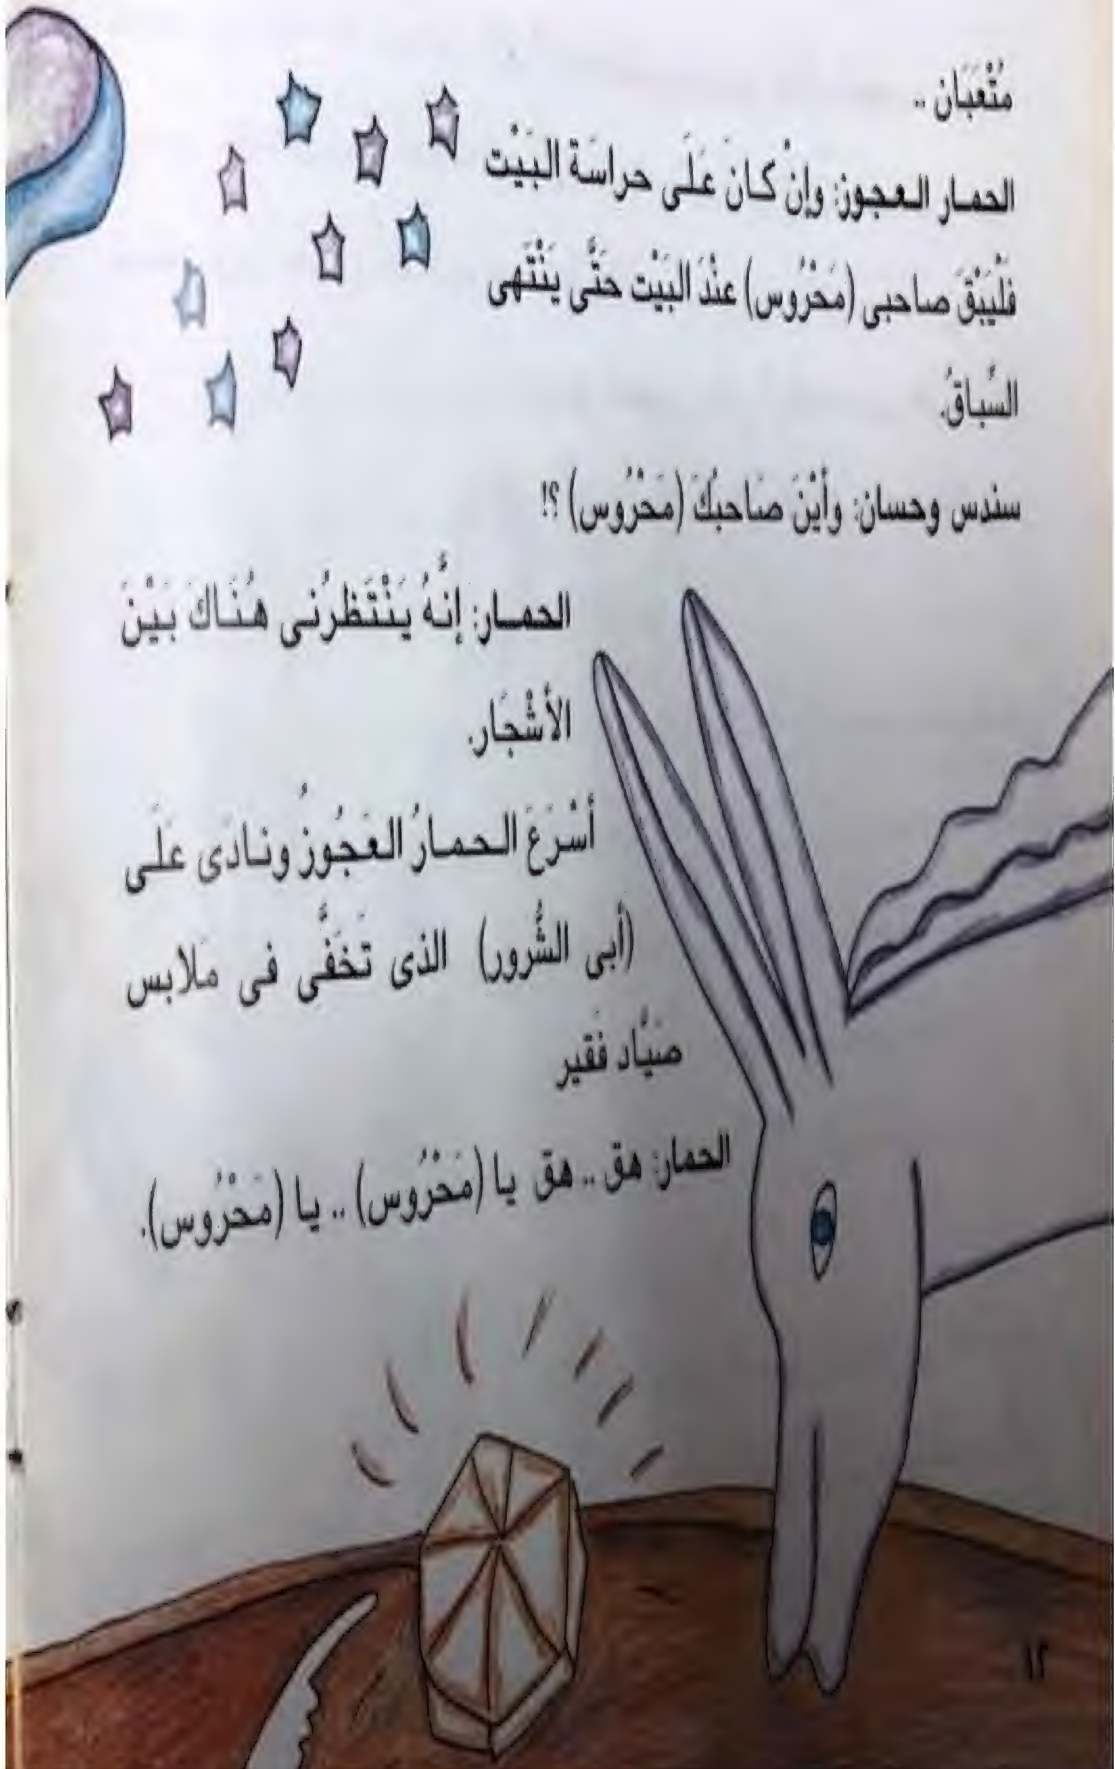 مُتْعَبَان ..
الحمار العجوز: وإنْ كانَ عَلَى حراسَة البَيْت
فَلْيَبْقَ صاحبى (مَحْرُوس) عنْدَ البَيْت حَتَّى يَنْتَهى
السِّباقُ.
سندس وحسان: وأيْنَ صَاحبُكَ (مَحْرُوس) ؟!
الحمار: إنَّهُ يَنْتَظرُنى هُنَاكَ بَيْنَ
الأشْجَار.
أسْرَعَ الحمارُ العَجُوزُ ونادَى عَلَى
(أبى الشُّرور) الذى تَخَفَّى فى مَلابس
صَيَّاد فَقير
الحمار: هق .. هق يا (مَحْرُوس) .. يا (مَحْرُوس).
١٢